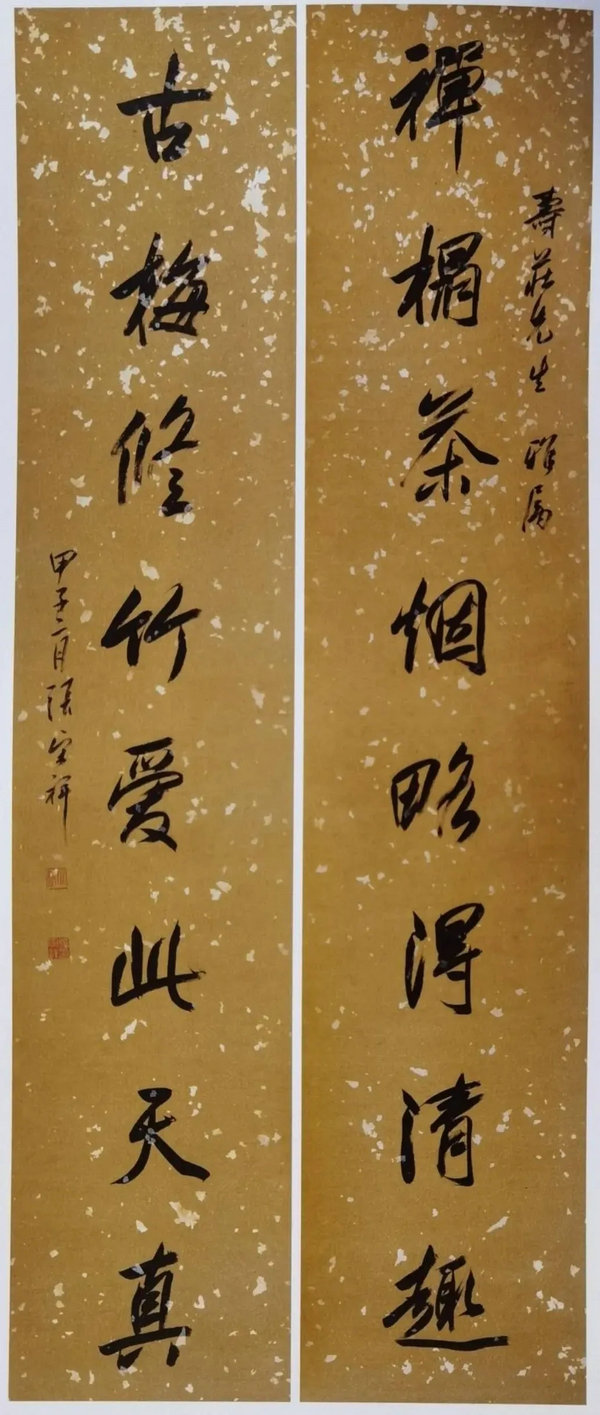 壽莊先生 雅屬
禪榻茶烟略得清趣
古梅修竹愛此天真
甲子二月張宗祥